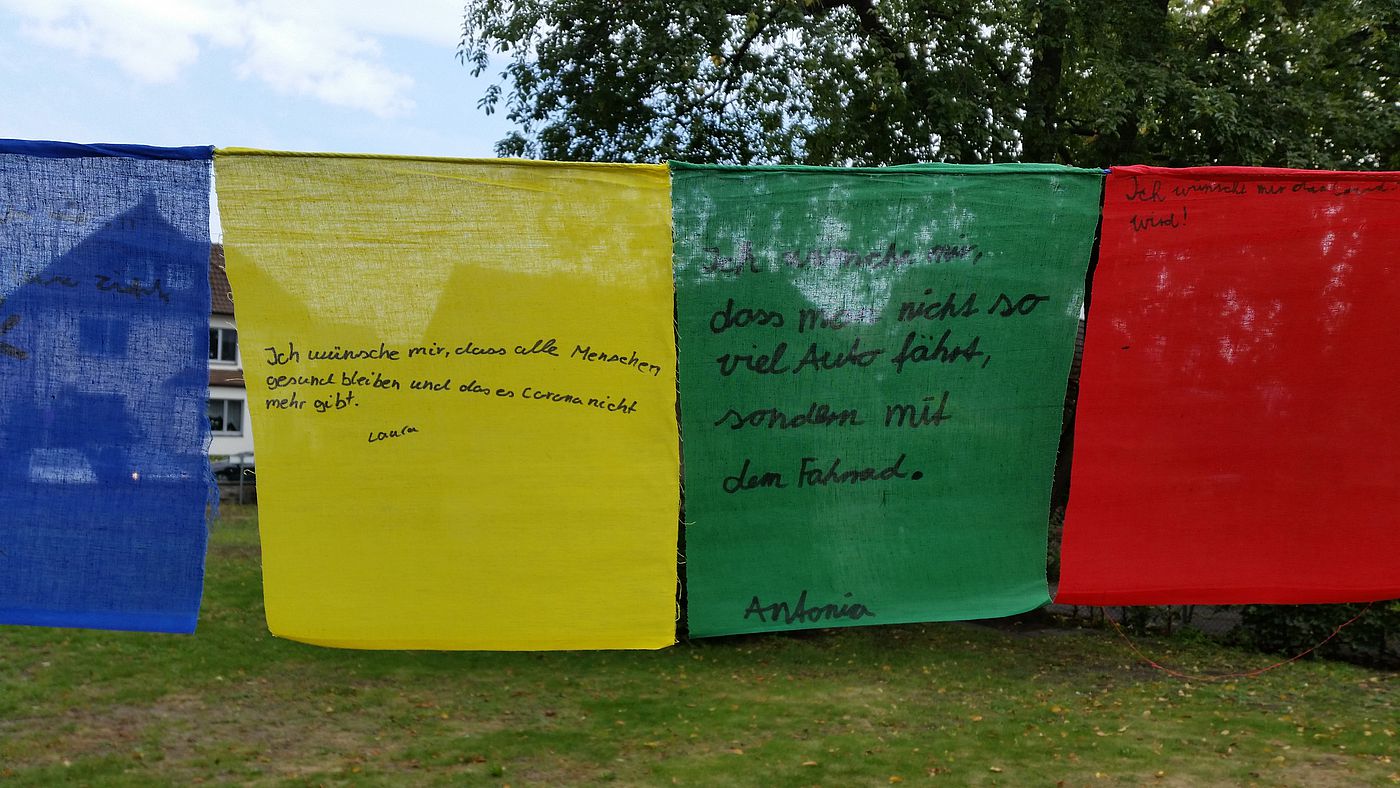 Ich wünsche mir, dass alle Menschen
gesund bleiben und das es Corona nicht
mehr gibt.
Laura
Ich wünsche mir,
dass man nicht so
viel Auto fährt,
sondern mit
dem Fahrrad.
Antonia
Ich wünscht mir das
wird!